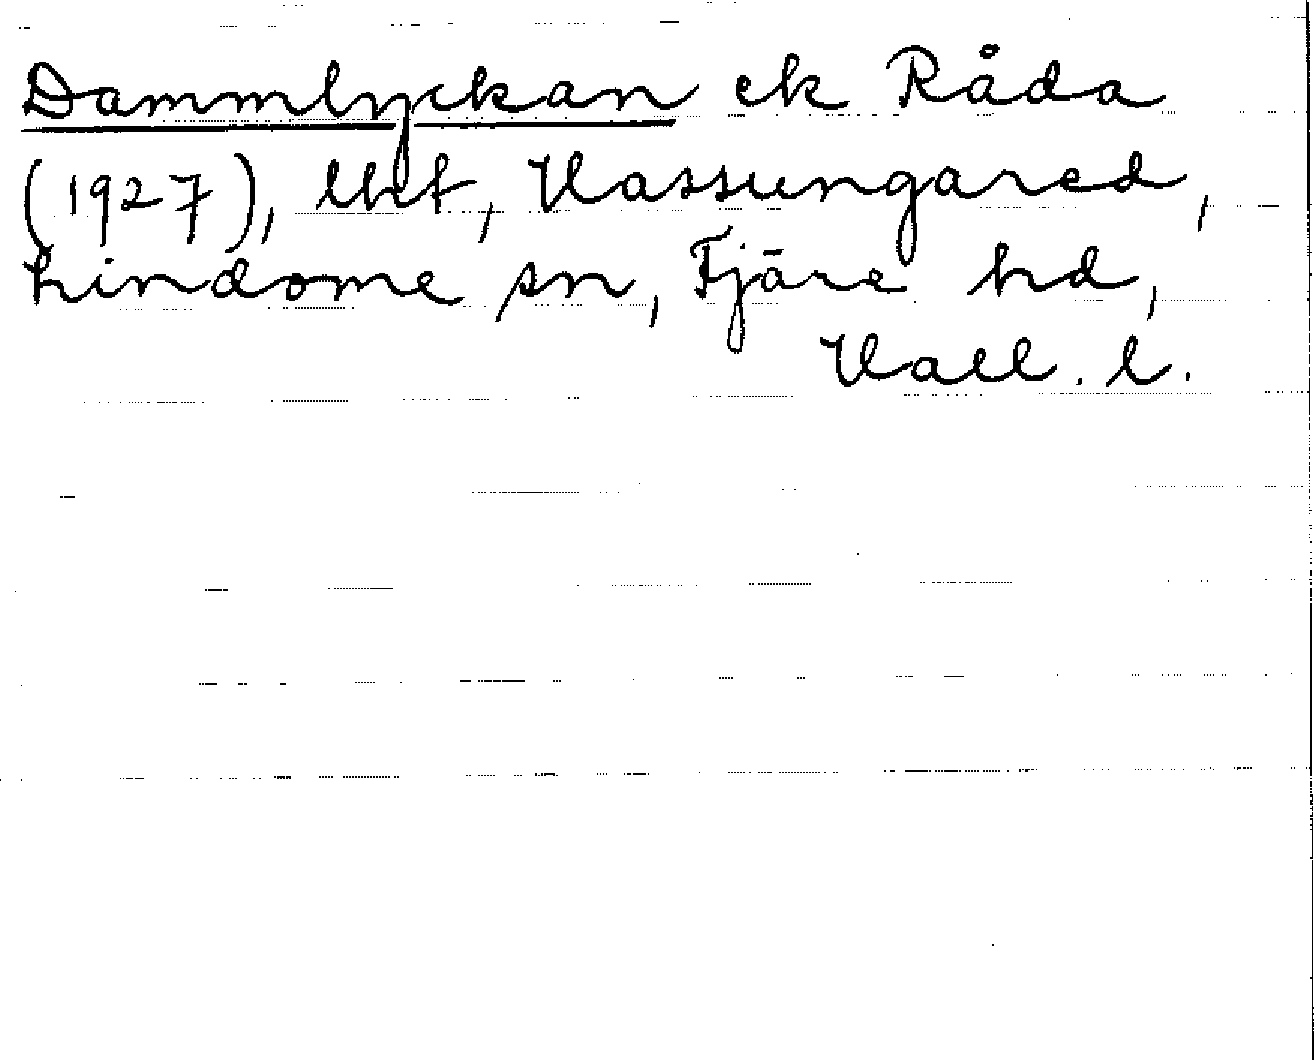 Dammlyckan ek Råda
(1927), lht, Hassungared,
Lindome sn, Fjäre hd,
Hall. l.